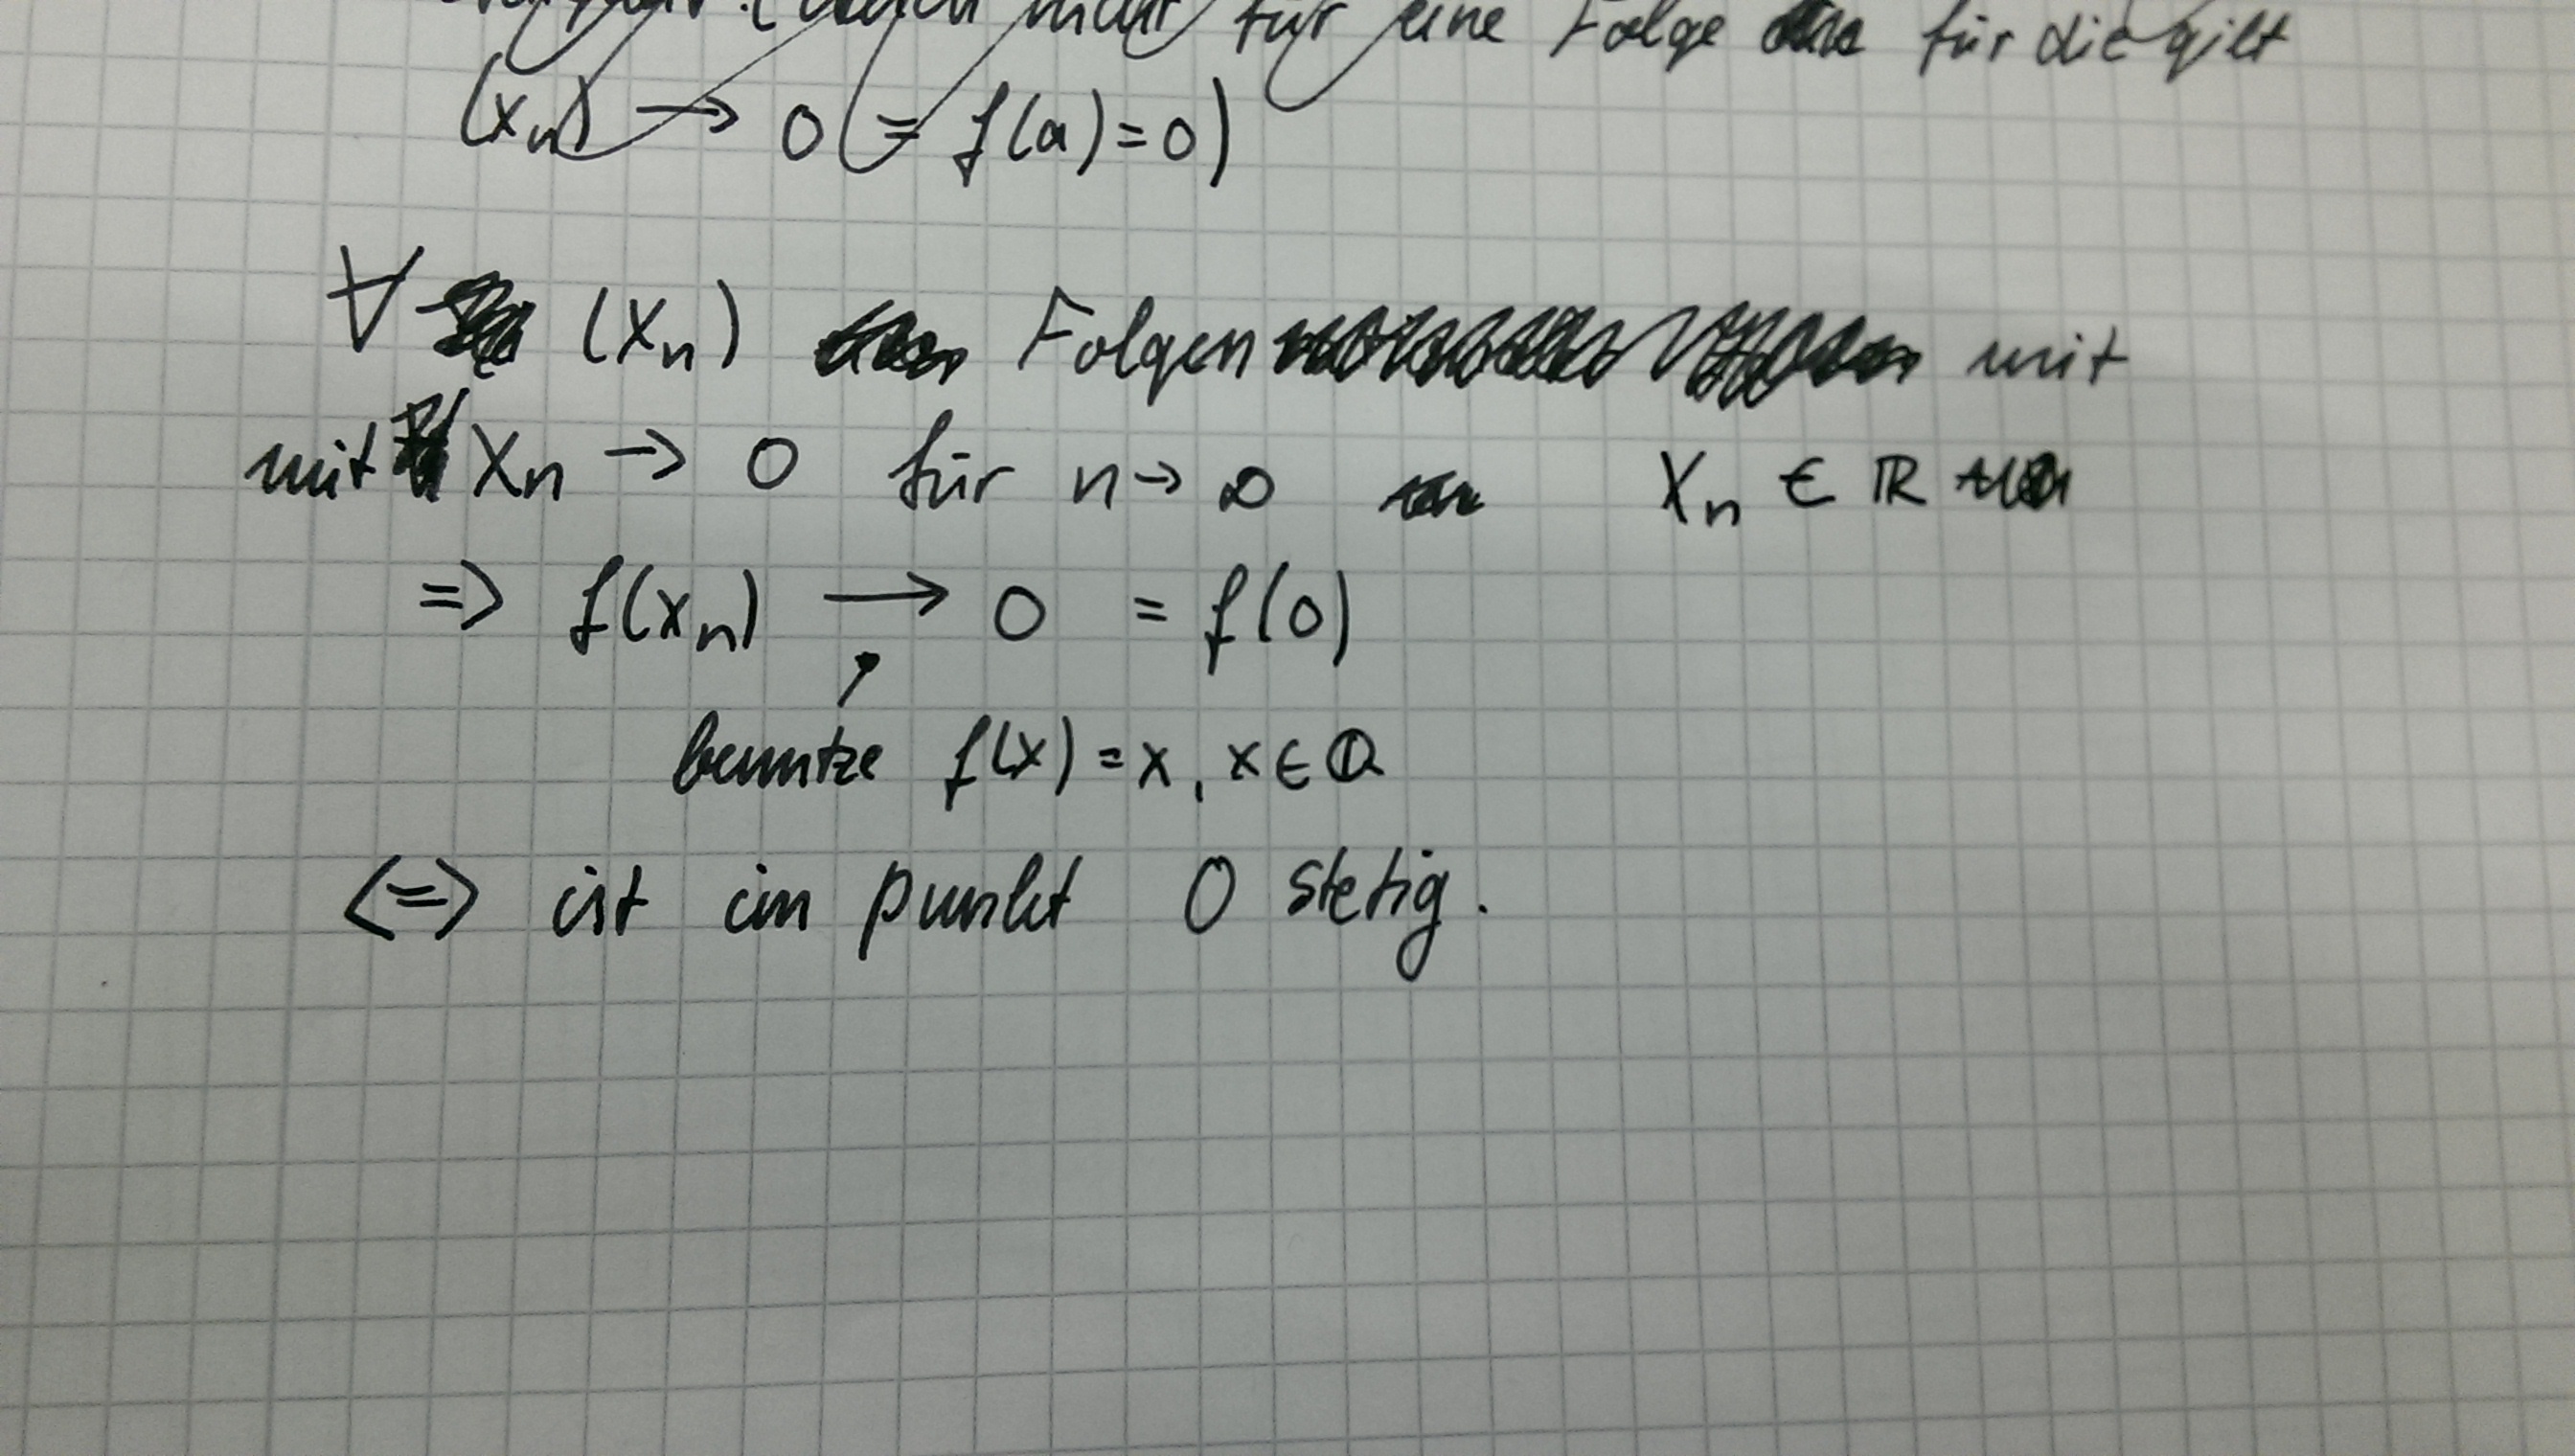 nicht für eine Folge für die gilt
(xₙ) → 0 (= f(a) = 0)
∀ (xₙ) Folgen mit
mit xₙ → 0 für n → ∞ xₙ ∈ ℝ
=> f(xₙ) → 0 = f(0)
benutze f(x) = x, x ∈ ℚ
<=> ist im punkt 0 stetig.